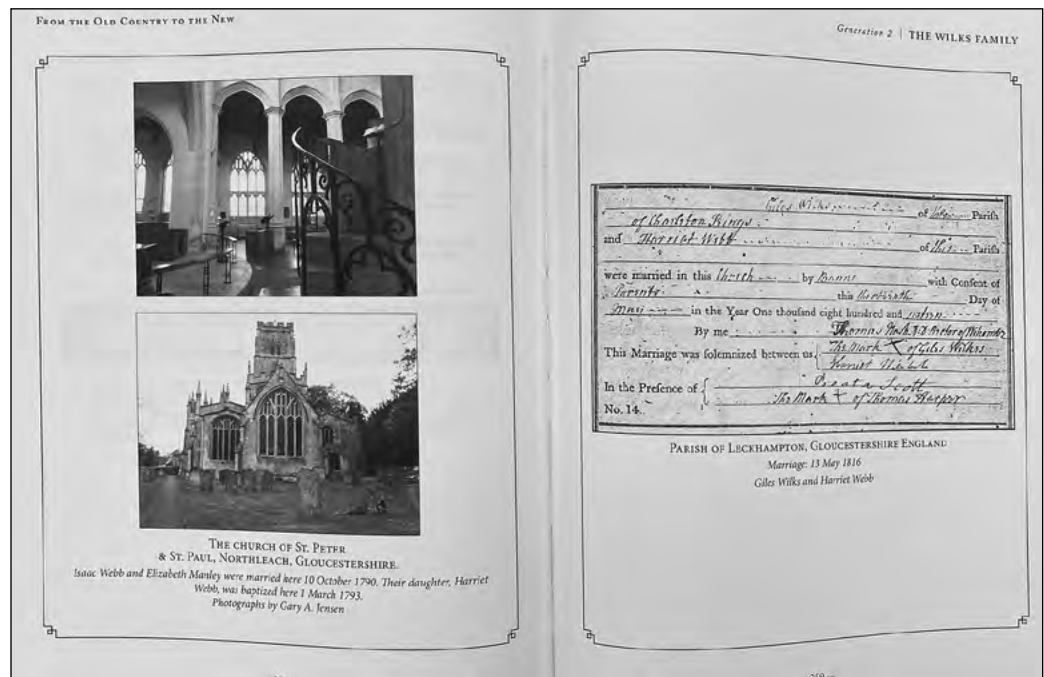 FROM THE OLD COUNTRY TO THE NEW
THE CHURCH OF ST. PETER
& ST. PAUL, NORTHLEACH, GLOUCESTERSHIRE.
Isaac Webb and Elizabeth Manley were married here 10 October 1790. Their daughter, Harriet
Webb, was baptized here 1 March 1793.
Photographs by Gary A. Jensen
Generation 2 | THE WILKS FAMILY
Giles Wilks of Parish
of Charlton Kings
and Harriet Webb of this Parish
were married in this Church by Banns with Consent of
Parents this thirteenth Day of
May in the Year One thousand eight hundred and sixteen
By me Thomas Nash
This Marriage was solemnized between us The Mark X of Giles Wilks
Harriet Webb
In the Presence of Scott
The Mark X of Thomas Harper
No. 14.
PARISH OF LECKHAMPTON, GLOUCESTERSHIRE ENGLAND
Marriage: 13 May 1816
Giles Wilks and Harriet Webb